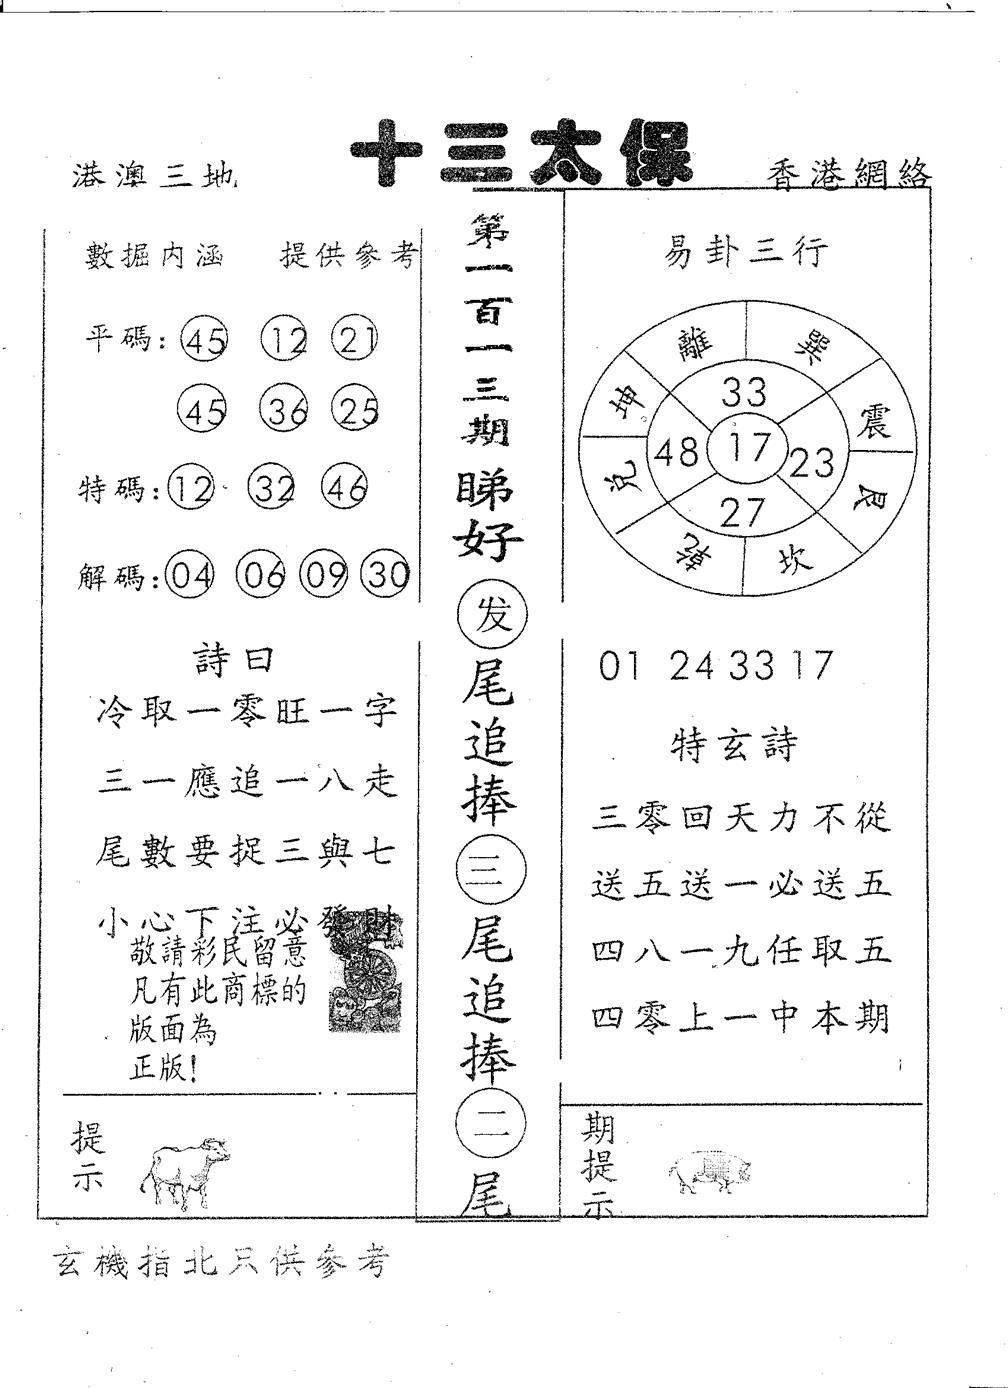 十三太保
港澳三地
香港網絡
數掘内涵 提供參考
平碼: 45 12 21
45 36 25
特碼: 12 32 46
解碼: 04 06 09 30
詩曰
冷取一零旺一字
三一應追一八走
尾數要捉三與七
小心下注必發財
敬請彩民留意
凡有此商標的
版面為
正版!
提示
第一百一三期睇好发尾追捧三尾追捧二尾
易卦三行
離 巽
坤 震
兑 艮
乾 坎
33
48 17 23
27
01 24 33 17
特玄詩
三零回天力不從
送五送一必送五
四八一九任取五
四零上一中本期
期提示
玄機指北只供參考